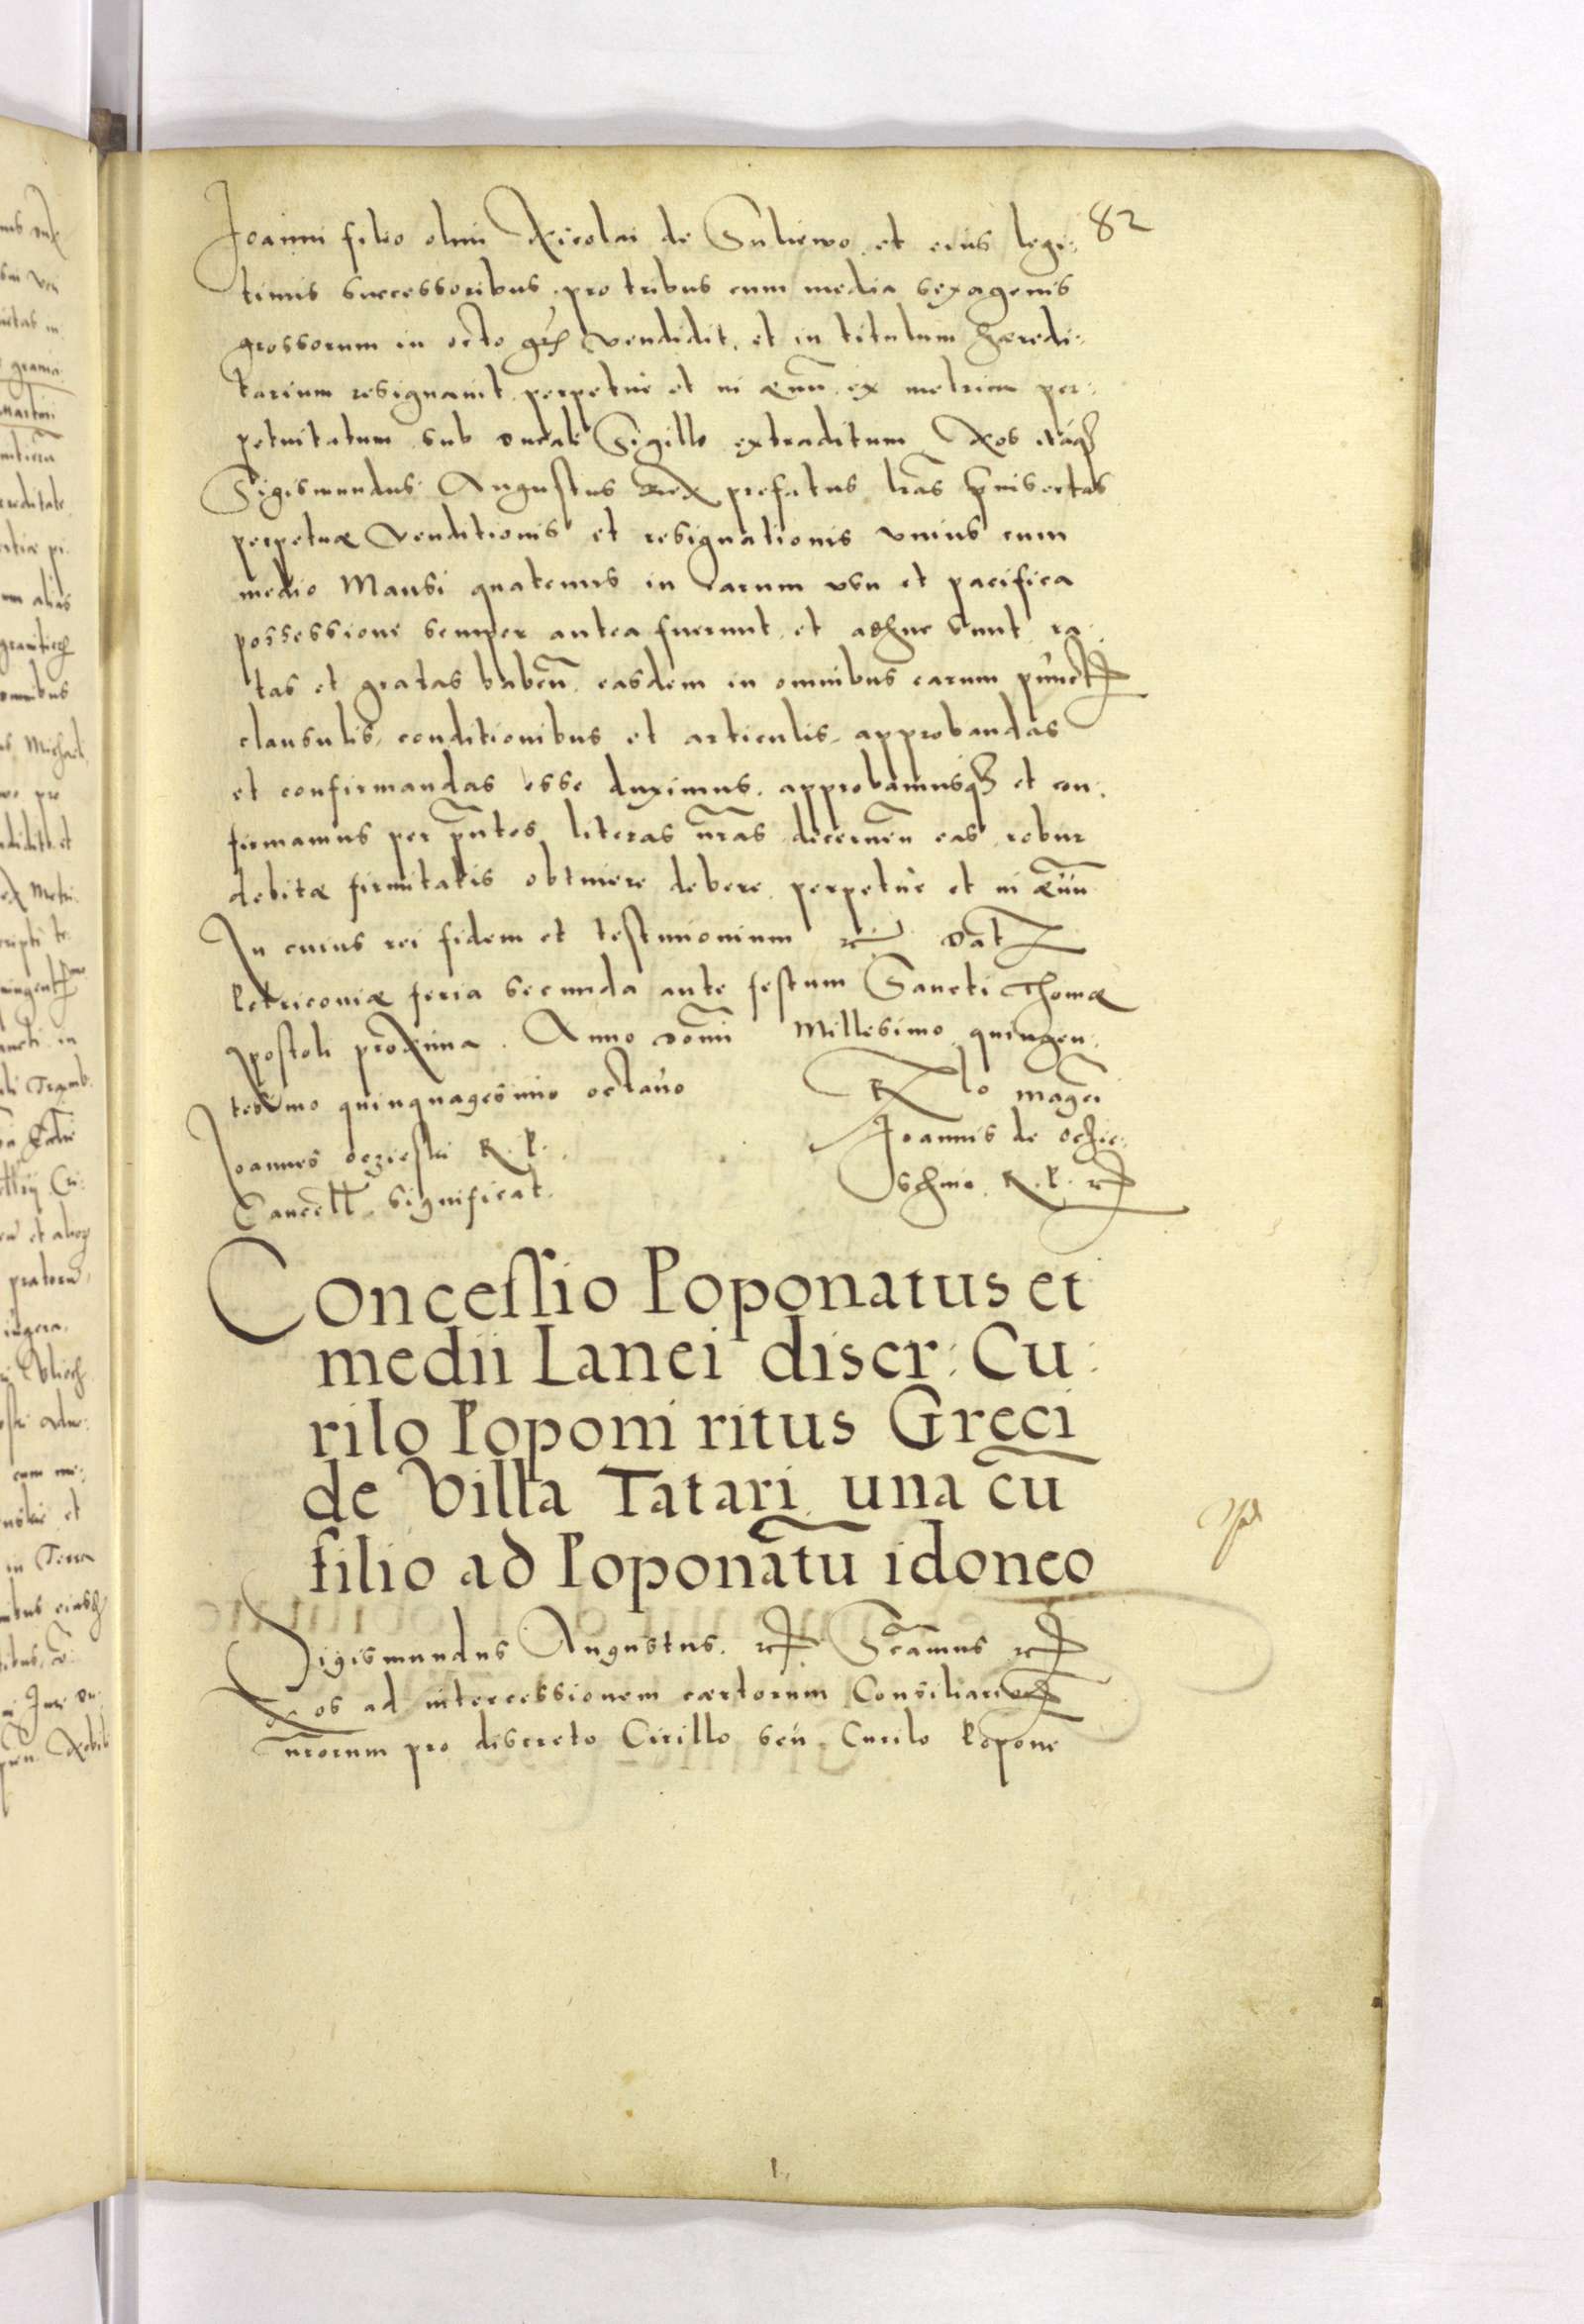 82
Joanni filio olim Nicolai de Suliewo et eius legi:
timis successoribus pro tribus cum media sexagenis
grossorum in octo grs vendidit, et in titulum haeredi:
tarium resignauit perpetue et in aeuũ ex metrica per:
petuitatum sub ducali Sigillo extraditum Nos itaq
Sigismundus Augustus Rex prefatus lr̃as p̃nisertas
perpetuae venditionis et resignationis vnius cum
medio Mansi quatenus in earum vsu et pacifica
possessione semper antea fuerunt et adhuc sunt ra:
tas et gratas habeñ easdem in omnibus earum punctis
clausulis conditionibus et articulis approbandas
et confirmandas esse duximus approbamusq et con:
firmamus per p̃ntes literas nr̃as decerneñ eas robur
debitae firmitatis obtinere debere perpetue et in aeuũ
In cuius rei fidem et testimonium rc Dat
Petricoviae feria secunda ante festum Sancti Thomae
apostoli proxima. Anno Domi Millesimo quingen:
tesimo quinquagesimo octauo
Rlo magci
Joannis de Oczie:
schino R. P. rc
Joannes Oczieski R. P.
Cancell significat.
Concessio Poponatus et
medii Lanei discr: Cu:
rilo Poponi ritus Greci
de Villa Tatari una cũ
filio ad Poponatũ idoneo
Sigismundus Augustus. rc Sc̃amus rc
Nos ad intercessionem caertorum Consiliariorum
nr̃orum pro discreto Cirillo seu Curilo Popone